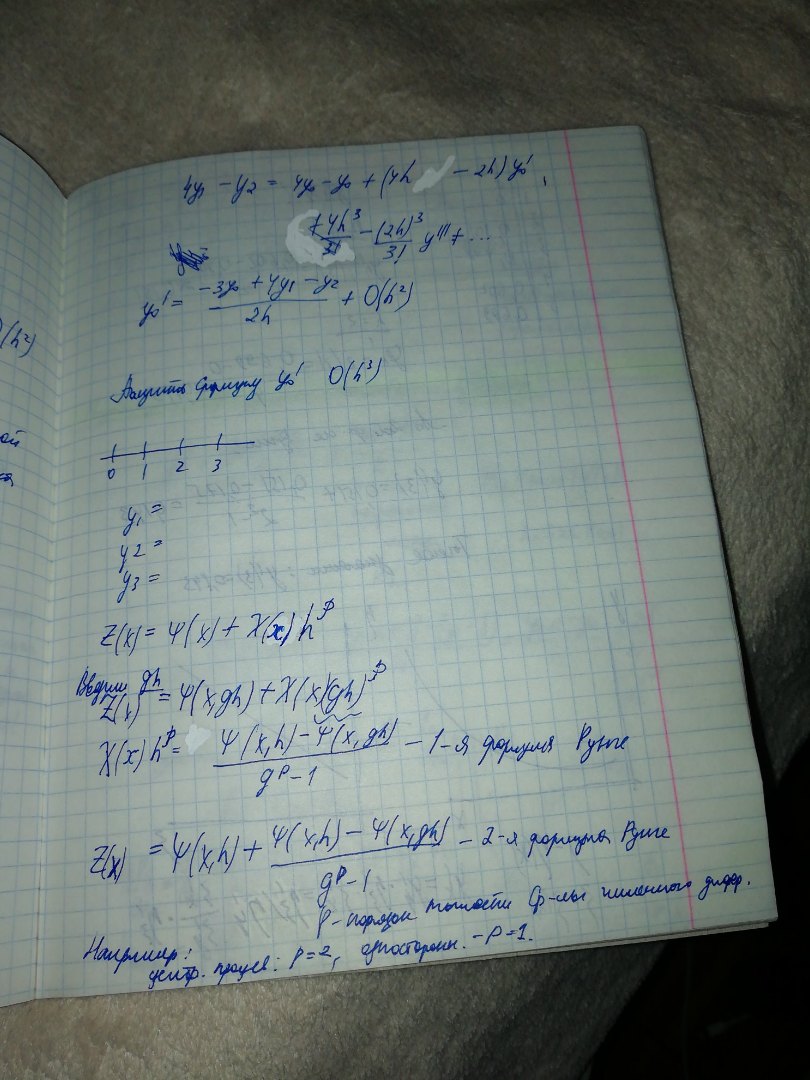 4y₁ - y₂ = 4y₀ - y₀ + (4h - 2h) y₀'
+ 4h³/3! - (2h)³/3! y''' + ...
y₀' = (-3y₀ + 4y₁ - y₂)/2h + O(h²)
формулу y₀' O(h³)
0 1 2 3
y₁ =
y₂ =
y₃ =
Z(x) = Ψ(x) + X(x) h^p
Введём gh
Z(x) = Ψ(x, gh) + X(x)(gh)^p
X(x) h^p = (Ψ(x, h) - Ψ(x, gh))/(g^p - 1) - 1-я формула Рунге
Z(x) = Ψ(x, h) + (Ψ(x, h) - Ψ(x, gh))/(g^p - 1) - 2-я формула Рунге
p - порядок точности ф-лы численного дифф.
Например:
центр. произв: p = 2, односторон. - p = 1.